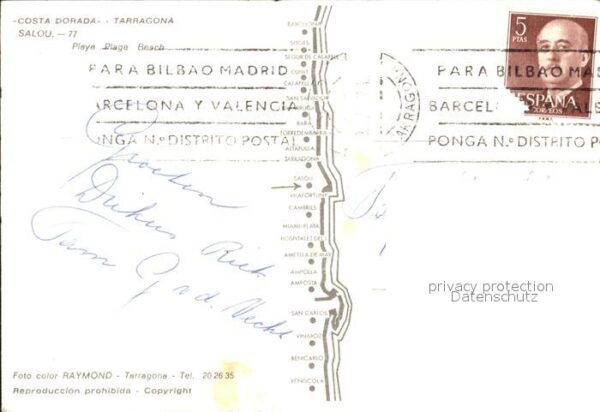 -COSTA DORADA- - TARRAGONA
SALOU. - 77
Playa Plage Beach
PARA BILBAO MADRID
BARCELONA Y VALENCIA
PONGA N.º DISTRITO POSTAL
PARA BILBAO MA
BARCEL
PONGA N.º DISTRITO P
5
PTAS
ESPAÑA
CORREOS
BARCELONA
SITGES
CUNIT
CALAFELL
SAN SALVADOR
BARA
TORREDEMBARRA
ALTAFULLA
TARRAGONA
SALOU
VILAFORTUNY
CAMBRILS
MIAMI-PLAYA
HOSPITALET DEL
AMETLLA DE MAR
AMPOLLA
AMPOSTA
SAN CARLOS
VINAROZ
BENICARLO
PEÑISCOLA
Groeten
Dirkus Riek
Tam G v.d. Vecht
privacy protection
Datenschutz
Foto color RAYMOND - Tarragona - Tel. 20 26 35
Reproducción prohibida - Copyright